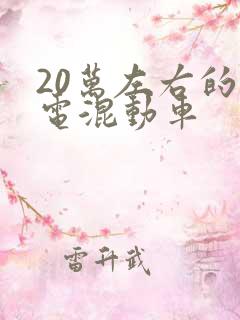 20萬左右的
電混動車
雷升武